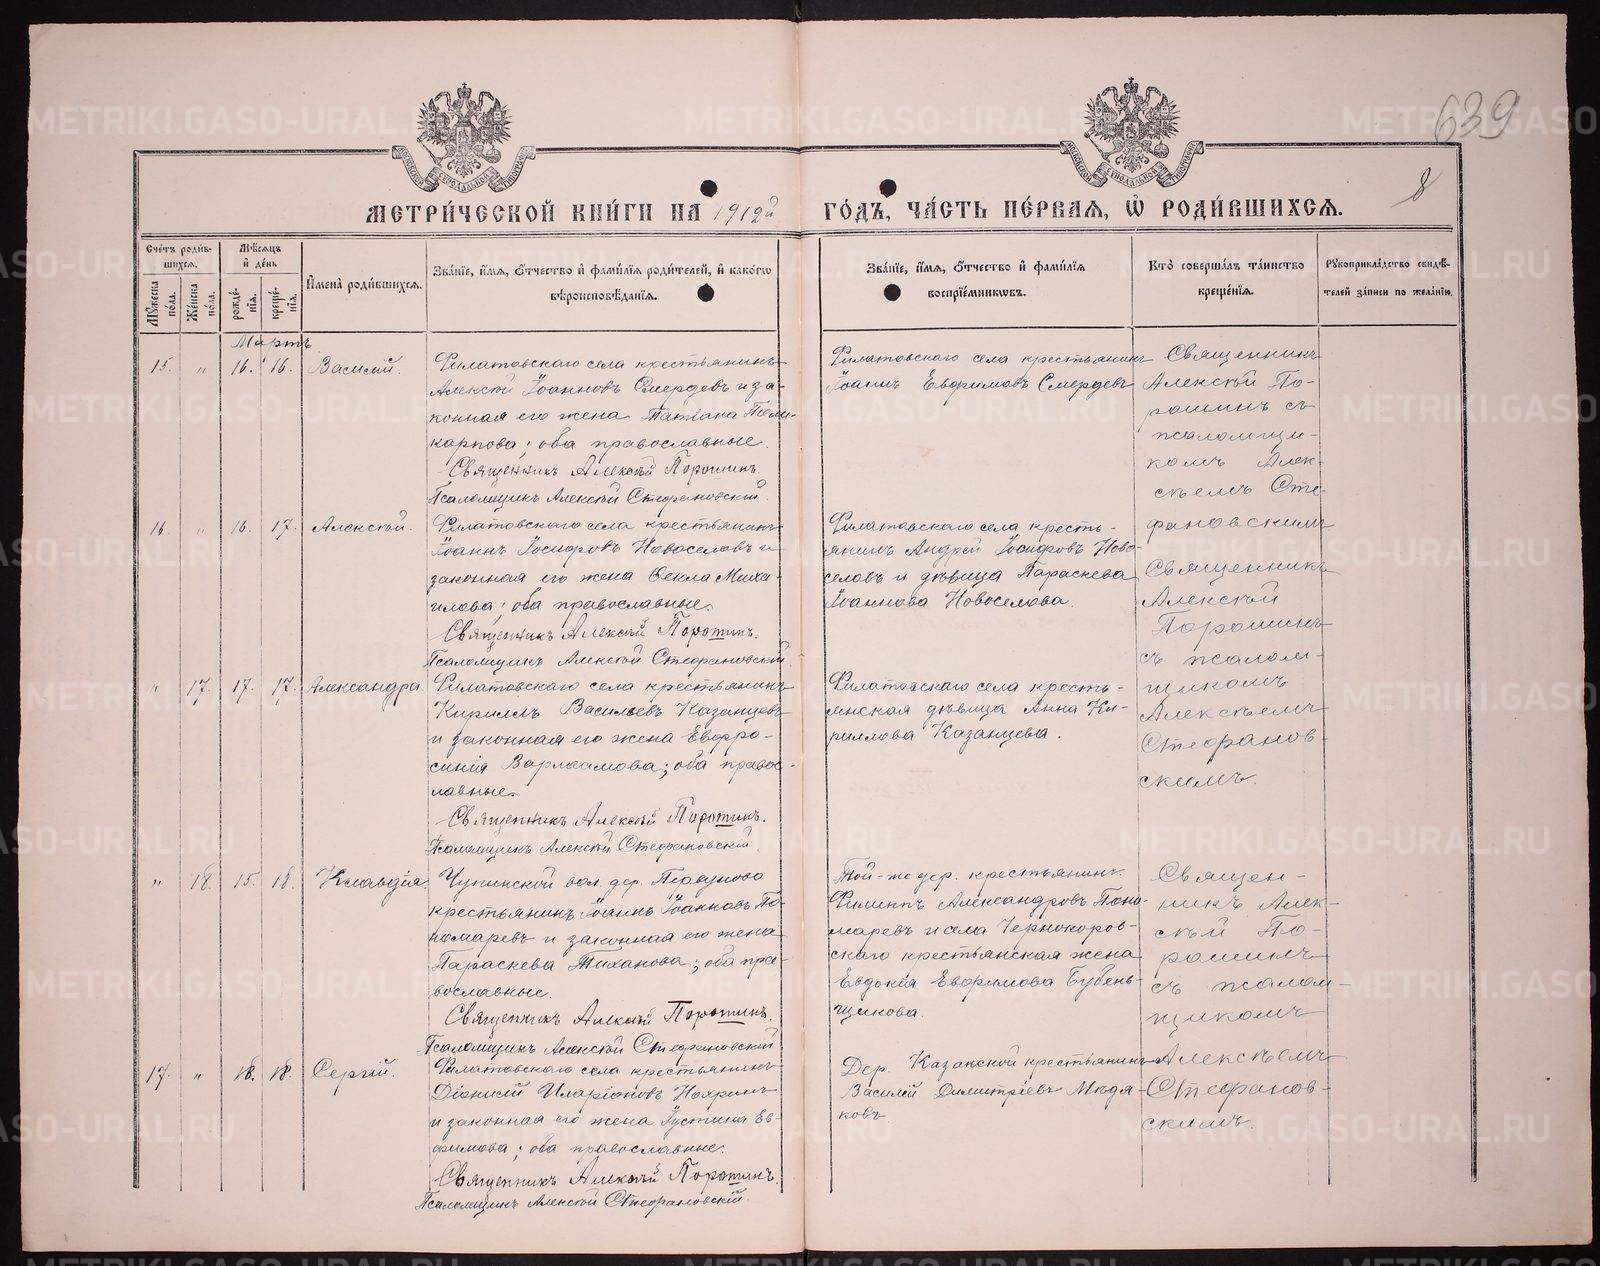 639
8
МЕТРИ́ЧЕСКОЙ КНИ́ГИ НА 1912й ГО́ДЪ, ЧА́СТЬ ПЕ́РВАЯ, Ѡ҆ РОДИ́ВШИХСЯ.
Сче́тъ роди́в-
шихся.
Мꙋжеска по́ла.
Же́нска по́ла.
Мѣ́сяцъ
и҆ де́нь
рожде́-
нїя.
креще́-
нїя.
И҆мена̀ роди́вшихся.
Зва́нїе, и҆́мя, ѻ҆́тчество и҆ фами́лїя роди́телей, и҆ како́гѡ
вѣроисповѣ́данїя.
Зва́нїе, и҆́мя, ѻ҆́тчество и҆ фами́лїя
воспрїе́мникѡвъ.
Кто̀ соверша́лъ та́инство
креще́нїя.
Рꙋкоприкла́дство свидѣ́-
телей за́писи по жела́нїю.
Мартъ
15. " 16. 16. Василій.
Филатовскаго села крестьянинъ
Алексѣй Іоанновъ Смердевъ и за-
конная его жена Татіана Поли-
карпова; оба православные.
Священникъ Алексѣй Порошинъ.
Псаломщикъ Алексѣй Стефановскій.
Филатовскаго села крестьянинъ
Іоаннъ Евфимовъ Смердевъ
Священникъ
Алексѣй По-
рошинъ съ
псаломщи-
комъ Алек-
сѣемъ Сте-
фановскимъ
16. " 16. 17. Алексѣй.
Филатовскаго села крестьянинъ
Іоаннъ Іосифовъ Новоселовъ и
законная его жена Ѳекла Миха-
илова; оба православные.
Священникъ Алексѣй Порошинъ.
Псаломщикъ Алексѣй Стефановскій.
Филатовскаго села кресть-
янинъ Андрей Іосифовъ Ново-
селовъ и дѣвица Параскева
Іоаннова Новоселова.
Священникъ
Алексѣй
Порошинъ
съ псалом-
щикомъ
Алексѣемъ
Стефанов-
скимъ.
" 17. 17. 17. Александра.
Филатовскаго села крестьянинъ
Кириллъ Васильевъ Казанцевъ
и законная его жена Евфро-
синія Варлаамова; оба право-
славные.
Священникъ Алексѣй Порошинъ.
Псаломщикъ Алексѣй Стефановскій.
Филатовскаго села кресть-
янская дѣвица Анна Ки-
риллова Казанцева.
" 18. 15. 18. Клавдія.
Чупинской вол. дер. Первуново
крестьянинъ Іоаннъ Іоанновъ По-
номаревъ и законная его жена
Параскева Тиханова; оба пра-
вославные.
Священникъ Алексѣй Порошинъ.
Псаломщикъ Алексѣй Стефановскій
Той-же дер. крестьянинъ
Филиппъ Александровъ Поно-
маревъ и села Чернокоров-
скаго крестьянская жена
Евдокія Евфимова Бубень-
щикова.
Священ-
никъ Алек-
сѣй По-
рошинъ
съ псалом-
щикомъ
Алексѣемъ
Стефанов-
скимъ.
17. " 18. 18. Сергій.
Филатовскаго села крестьянинъ
Діонисій Иларіоновъ Нохринъ
и законная его жена Іустина Ев-
фимова; оба православные.
Священникъ Алексѣй Порошинъ.
Псаломщикъ Алексѣй Стефановскій.
Дер. Казанской крестьянинъ
Василій Димитріевъ Мѣдя-
ковъ.